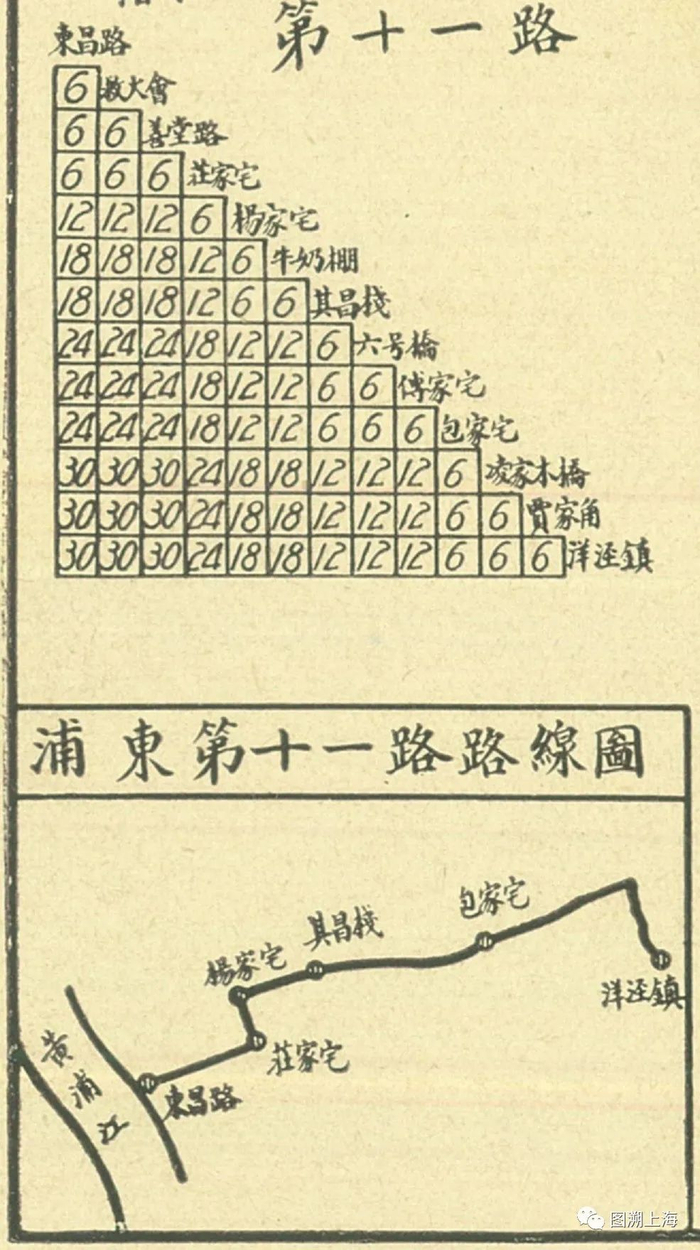 第十一路
東昌路
6 教大會
6 6 善堂路
6 6 6 莊家宅
12 12 12 6 楊家宅
18 18 18 12 6 牛奶棚
18 18 18 12 6 6 其昌棧
24 24 24 18 12 12 6 六号橋
24 24 24 18 12 12 6 6 傅家宅
24 24 24 18 12 12 6 6 6 包家宅
30 30 30 24 18 18 12 12 12 6 凌家木橋
30 30 30 24 18 18 12 12 12 6 6 賈家角
30 30 30 24 18 18 12 12 12 6 6 6 洋涇鎮
浦東第十一路路線圖
包家宅
其昌棧
楊家宅
洋涇鎮
莊家宅
黄浦江
東昌路
图溯上海